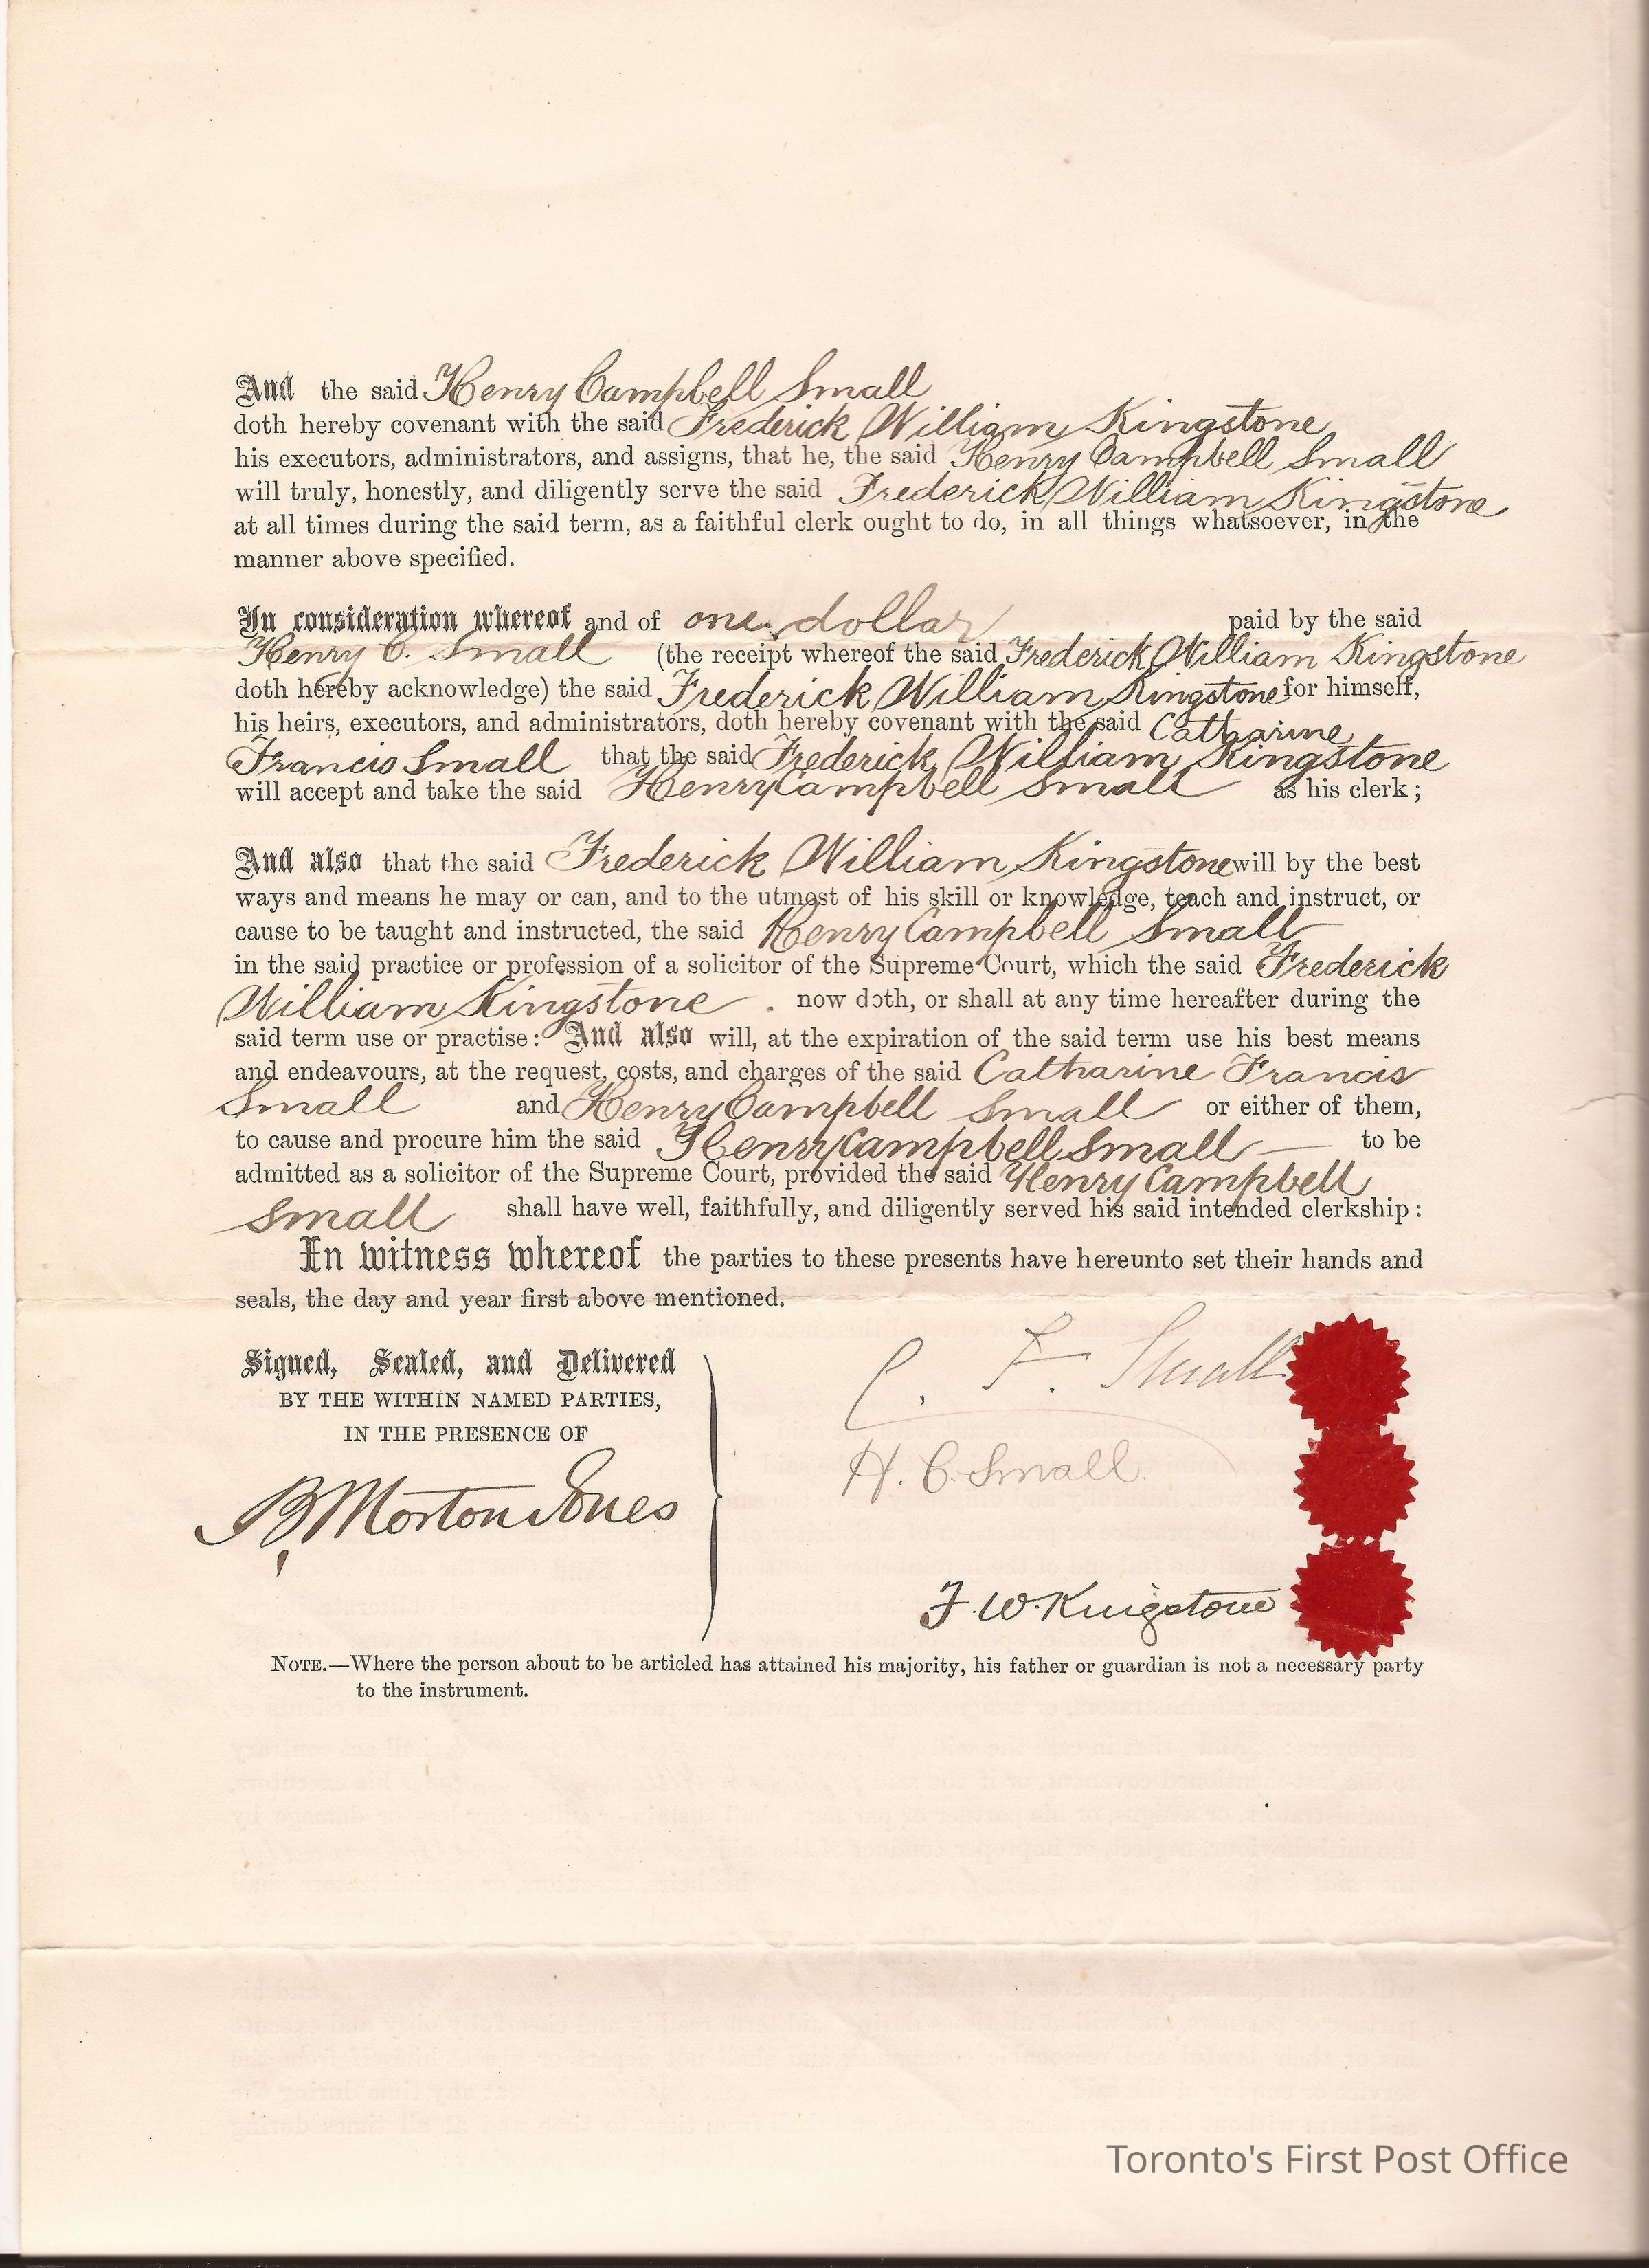 And the said Henry Campbell Small
doth hereby covenant with the said Frederick William Kingstone
his executors, administrators, and assigns, that he, the said Henry Campbell Small
will truly, honestly, and diligently serve the said Frederick William Kingstone
at all times during the said term, as a faithful clerk ought to do, in all things whatsoever, in the
manner above specified.
In consideration whereof and of one dollar paid by the said
Henry C. Small (the receipt whereof the said Frederick William Kingstone
doth hereby acknowledge) the said Frederick William Kingstone for himself,
his heirs, executors, and administrators, doth hereby covenant with the said Catharine
Francis Small that the said Frederick William Kingstone
will accept and take the said Henry Campbell Small as his clerk;
And also that the said Frederick William Kingstone will by the best
ways and means he may or can, and to the utmost of his skill or knowledge, teach and instruct, or
cause to be taught and instructed, the said Henry Campbell Small
in the said practice or profession of a solicitor of the Supreme Court, which the said Frederick
William Kingstone . now doth, or shall at any time hereafter during the
said term use or practise: And also will, at the expiration of the said term use his best means
and endeavours, at the request, costs, and charges of the said Catharine Francis
Small and Henry Campbell Small or either of them,
to cause and procure him the said Henry Campbell Small — to be
admitted as a solicitor of the Supreme Court, provided the said Henry Campbell
Small shall have well, faithfully, and diligently served his said intended clerkship:
In witness whereof the parties to these presents have hereunto set their hands and
seals, the day and year first above mentioned.
Signed, Sealed, and Delivered
BY THE WITHIN NAMED PARTIES,
IN THE PRESENCE OF
B Morton Jones
C. F. Small
H. C. Small.
F. W. Kingstone
NOTE.—Where the person about to be articled has attained his majority, his father or guardian is not a necessary party
to the instrument.
Toronto's First Post Office